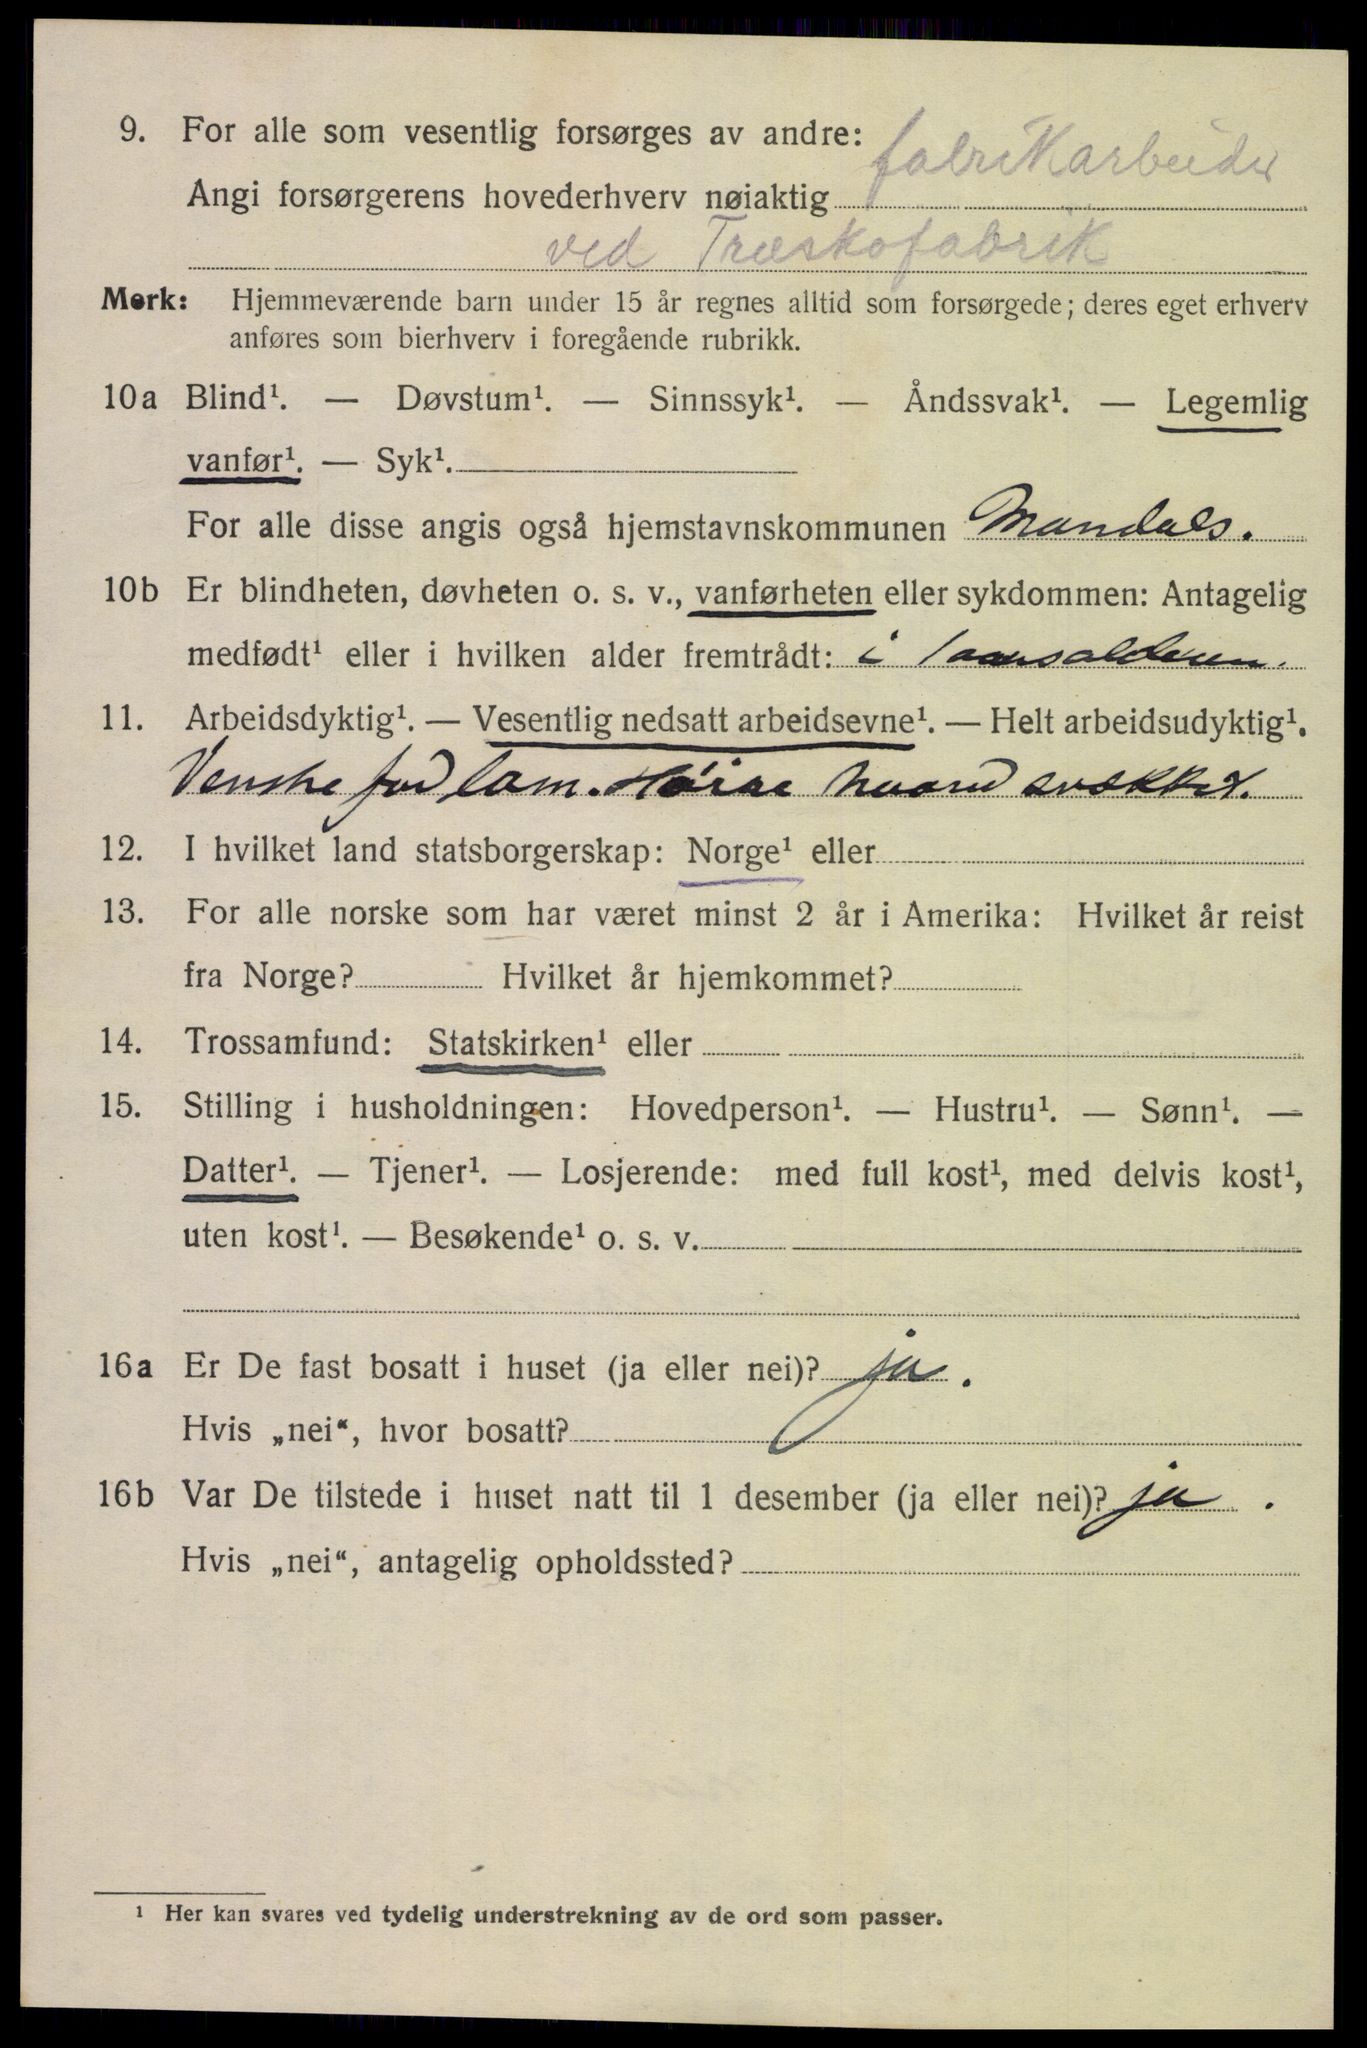 9. For alle som vesentlig forsørges av andre:
Angi forsørgerens hovederhverv nøiaktig fabrikarbeider
ved Træskofabrik
Merk: Hjemmeværende barn under 15 år regnes alltid som forsørgede; deres eget erhverv
anføres som bierhverv i foregående rubrikk.
10a Blind¹. — Døvstum¹. — Sinnssyk¹. — Åndssvak¹. — Legemlig
vanfør¹. — Syk¹.
For alle disse angis også hjemstavnskommunen Mandals.
10b Er blindheten, døvheten o. s. v., vanførheten eller sykdommen: Antagelig
medfødt¹ eller i hvilken alder fremtrådt: i 1aarsalderen.
11. Arbeidsdyktig¹. — Vesentlig nedsatt arbeidsevne¹. — Helt arbeidsudyktig¹.
Venstre fod lam. Høire haand svækket.
12. I hvilket land statsborgerskap: Norge¹ eller
13. For alle norske som har været minst 2 år i Amerika: Hvilket år reist
fra Norge? Hvilket år hjemkommet?
14. Trossamfund: Statskirken¹ eller
15. Stilling i husholdningen: Hovedperson¹. — Hustru¹. — Sønn¹. —
Datter¹. — Tjener¹. — Losjerende: med full kost¹, med delvis kost¹,
uten kost¹. — Besøkende¹ o. s. v.
16a Er De fast bosatt i huset (ja eller nei)? ja.
Hvis „nei“, hvor bosatt?
16b Var De tilstede i huset natt til 1 desember (ja eller nei)? ja.
Hvis „nei“, antagelig opholdssted?
¹ Her kan svares ved tydelig understrekning av de ord som passer.